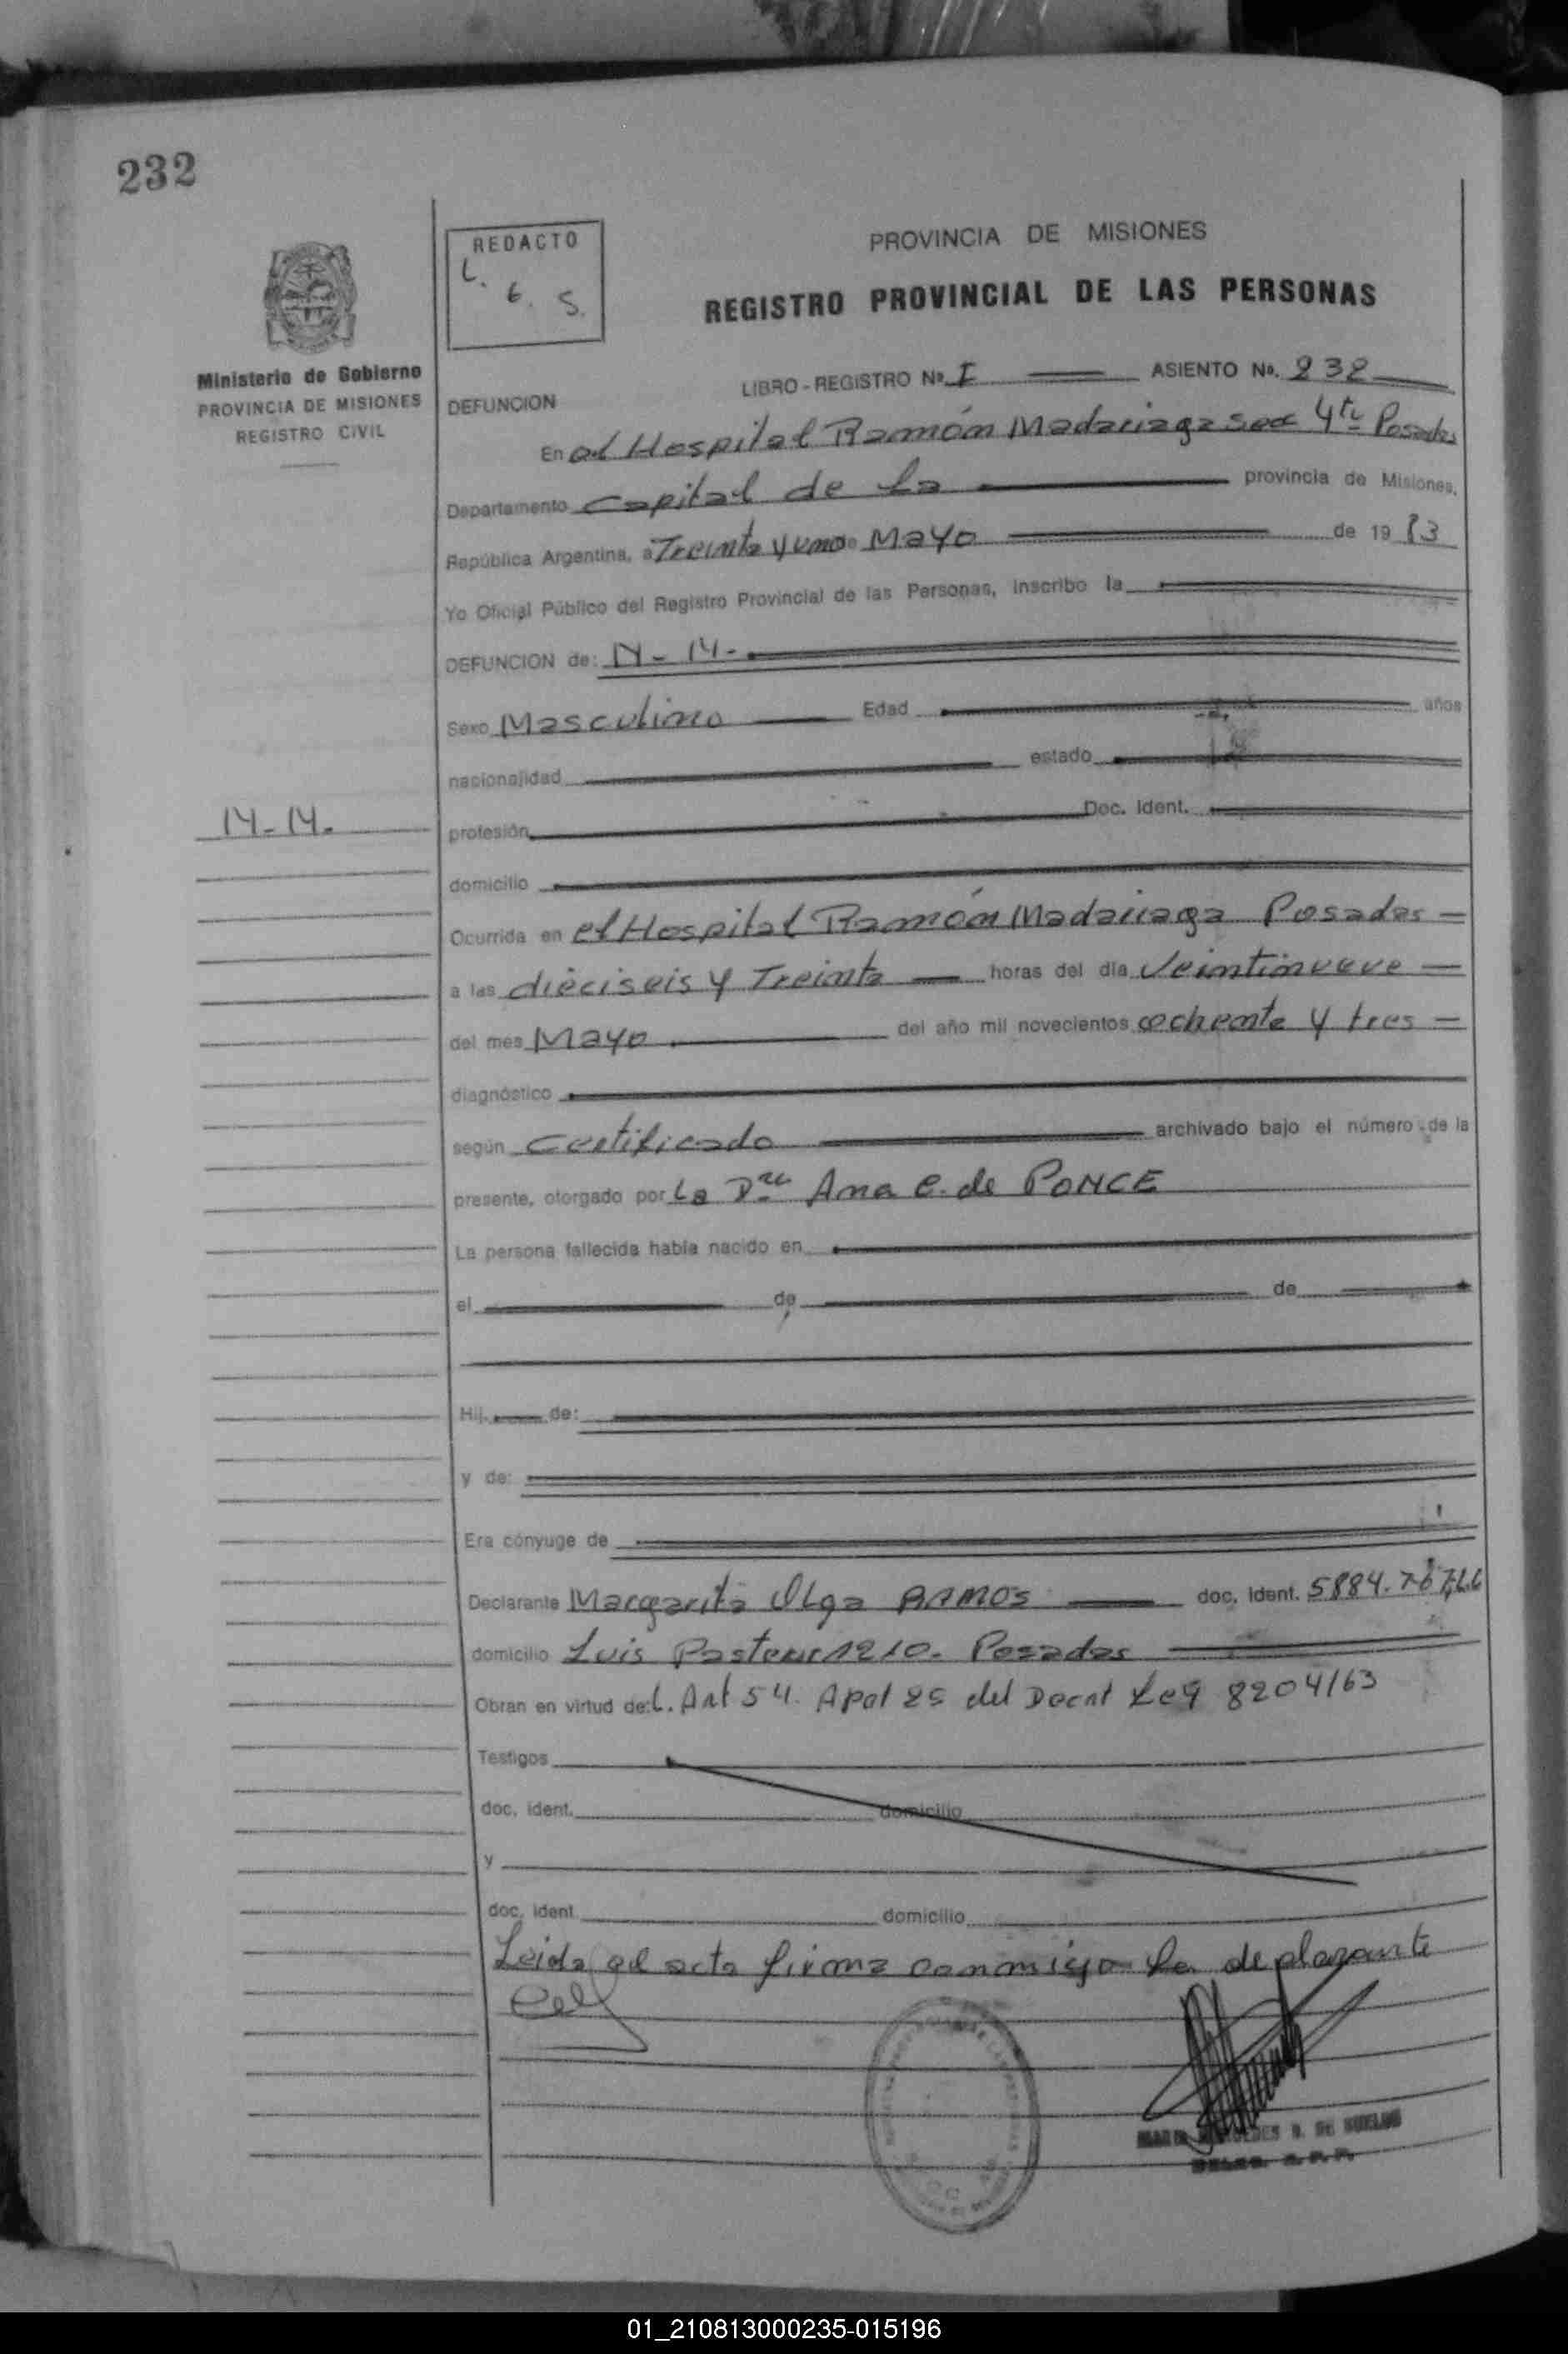 232
REDACTO
L. G. S.
PROVINCIA DE MISIONES
REGISTRO PROVINCIAL DE LAS PERSONAS
Ministerio de Gobierno
PROVINCIA DE MISIONES
REGISTRO CIVIL
LIBRO - REGISTRO Nº I ASIENTO No. 232
DEFUNCION
En el Hospital Ramón Madariaga Sec 4ta Posadas
Departamento Capital de la provincia de Misiones,
República Argentina, a Treinta y uno de Mayo de 19 83
Yo Oficial Público del Registro Provincial de las Personas, inscribo la
DEFUNCION de: N-N-
Sexo Masculino Edad años
nacionalidad estado
N-N.
profesión Doc. Ident.
domicilio
Ocurrida en el Hospital Ramón Madariaga Posadas
a las dieciseis y Treinta horas del día Veintinueve
del mes Mayo del año mil novecientos ochenta y tres
diagnóstico
según Certificado archivado bajo el número de la
presente, otorgado por La Dra Ana C. de PONCE
La persona fallecida había nacido en
el de de
Hij de:
y de:
Era cónyuge de
Declarante Margarita Olga RAMOS doc. ident. 5884.767
domicilio Luis Pasteur 1210. Posadas
Obran en virtud de: L. Art 54. Apat 2 del Decat Ley 8204/63
Testigos
doc. ident. domicilio
y
doc. ident domicilio
Leida el acta firma conmigo la declarante
DE
01_210813000235-015196